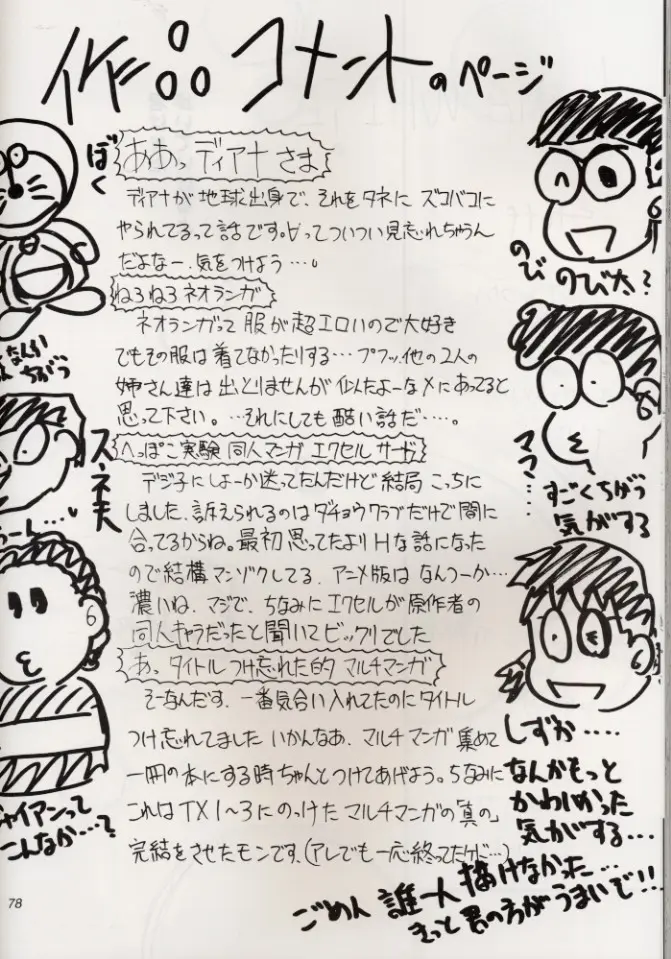 作品コメントのページ
ああっディアナさま
ディアナが地球出身で、それをタネにズコバコに
やられてるって話です。∀ってついつい見忘れちゃうん
だよなー、気をつけよう…。
ねろねろネオランガ
ネオランガって服が超エロいので大好き
でもその服は着てなかったりする…プフッ、他の2人の
姉さん達は出とりませんが似たよーなメにあってると
思って下さい。…それにしても酷い話だ…。
へっぽこ実験同人マンガ エクセルサーガ
デジ子にしよーか迷ってたんだけど結局こっちに
しました、訴えられるのはダチョウクラブだけで間に
合ってるからね。最初思ってたよりHな話になった
ので結構マンゾクしてる、アニメ版はなんつーか…
濃いね、マジで、ちなみにエクセルが原作者の
同人キャラだったと聞いてビックリでした
あ、タイトルつけ忘れた的マルチマンガ
そーなんだす、一番気合い入れてたのにタイトル
つけ忘れてました いかんなあ、マルチマンガ集めて
一冊の本にする時ちゃんとつけてあげよう。ちなみに
これはTX1~3にのっけたマルチマンガの「真の」
完結をさせたモンです、(アレでも一応終ってたけど…)
ぼく
なんか
ちがう
スネ夫
うーん…
ジャイアンって
こんなか…?
のび のび太?
ママ…
すごくちがう
気がする
しずか….
なんかもっと
かわいかった
気がする…
ごめん 誰一人描けなかった…
きっと君の方がうまいで!!
78